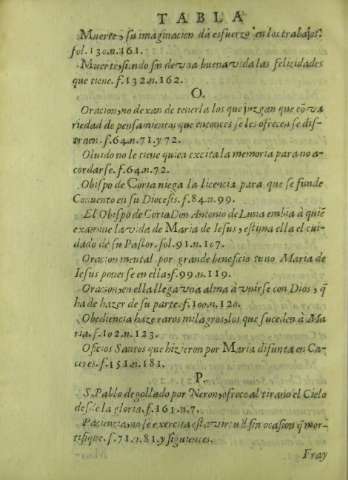 TABLA
Muerte, su imaginacion dà esfuerzo en los trabajos.
fol. 130. n. 161.
Muerte, siendo fin de vna buena vida las felizidades
que tiene. f. 132. n. 162.
O.
Oracion, no dexan de tenerla los que juzgan que cõ va
riedad de pensamientos que entonces se les ofrecen se dis-
traen. f. 64. n. 71. y 72.
Oluido no le tiene quien excita la memoria para no a-
cordarse. f. 64. n. 72.
Obispo de Coria niega la licencia para que se funde
Conuento en su Diocesis. f. 84. n. 99.
El Obispo de Coria Don Antonio de Luna embia à quiẽ
examine la vida de Maria de Iesus, estima ella el cui-
dado de su Pastor. fol. 91. n. 107.
Oracion mental por grande beneficio tuuo Maria de
Iesus poner se en ella, f. 99. n. 119.
Oracion, en ella llega vna alma à vnirse con Dios, q̃
ha de hazer de su parte. f. 100. n. 120.
Obediencia haze raros milagros, los que suceden à Ma
ria. f. 102. n. 123.
Oficios Santos que hizieron por Maria difunta en Ca-
ceres. f. 151. n. 181.
P.
S. Pablo degollado por Neron, ofrece al tirano el Cielo
desde la gloria. f. 161. n. 7.
Paciencia, no se exercita estando sin ocasion q̃ mor-
tifique. f. 71. n. 81. y siguientes.
Fray